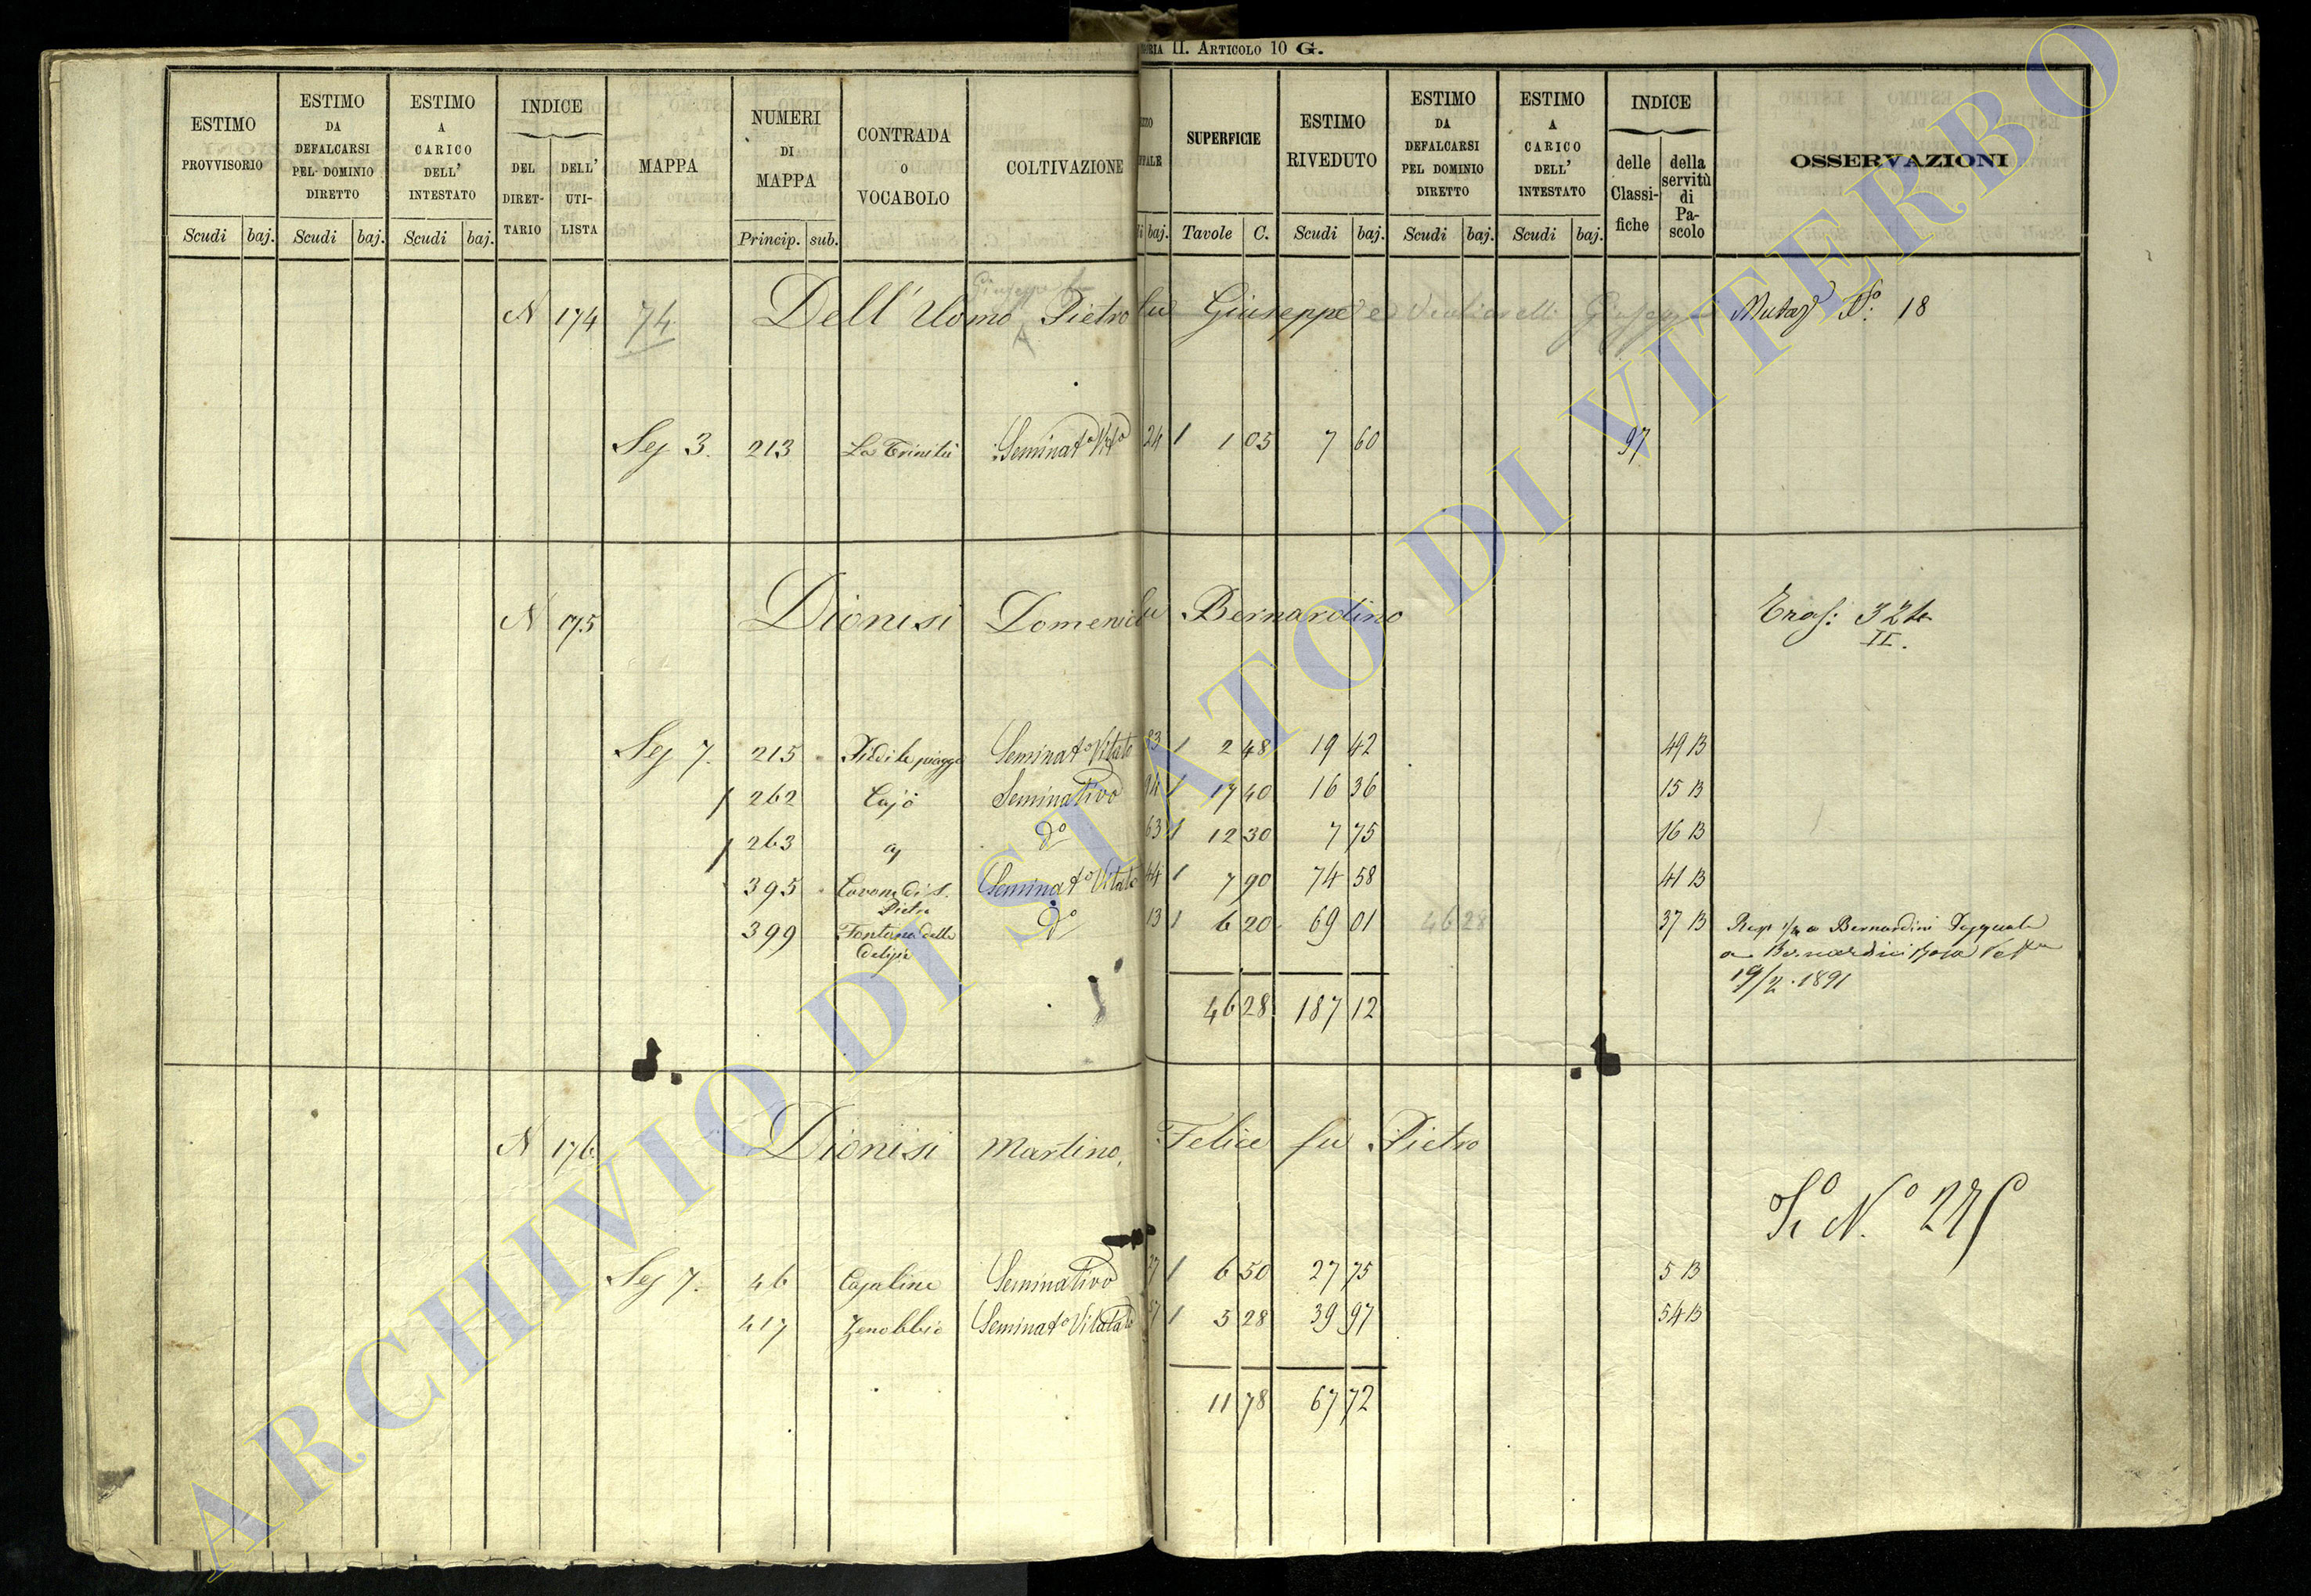 II. ARTICOLO 10 G.
ESTIMO PROVVISORIO
ESTIMO DA DEFALCARSI PEL DOMINIO DIRETTO
ESTIMO A CARICO DELL' INTESTATO
INDICE
DEL DIRET-TARIO
DELL' UTI-LISTA
MAPPA
NUMERI DI MAPPA
CONTRADA O VOCABOLO
COLTIVAZIONE
SUPERFICIE
ESTIMO RIVEDUTO
ESTIMO DA DEFALCARSI PEL DOMINIO DIRETTO
ESTIMO A CARICO DELL' INTESTATO
INDICE
delle Classi-fiche
della servitù di Pa-scolo
OSSERVAZIONI
Scudi baj. Scudi baj. Scudi baj. Princip. sub. baj. Tavole C. Scudi baj. Scudi baj. Scudi baj.
N 174 74 Dell' Uomo Pietro fu Giuseppe e N°: 18
Sej 3. 213 La Trinità Seminat° Vit° 24 1 1 05 7 60 97
N 175 Dionisi Domenico fu Bernardino
II.
Sej 7. 215 Seminat° Vitato 83 1 2 48 19 42 49 B
1 262 Seminativo 94 1 17 40 16 36 15 B
1 263 d° 63 1 12 30 7 75 16 B
395 Seminat° Vitato 44 1 7 90 74 58 41 B
Pietro
399 Fontana delle d° 13 1 6 20 69 01 46 28 37 B a Bernardini Pasquale
a Bernardini Rosa
19/2. 1891
46 28 187 12
N 176 Dionisi Martino, Felice fu Pietro
Sej 7. 46 Casaline Seminativo 1 6 50 27 75 5 B
417 Zenobbio Seminat° Vitato 1 5 28 39 97 54 B
11 78 67 72
ARCHIVIO DI STATO DI VITERBO